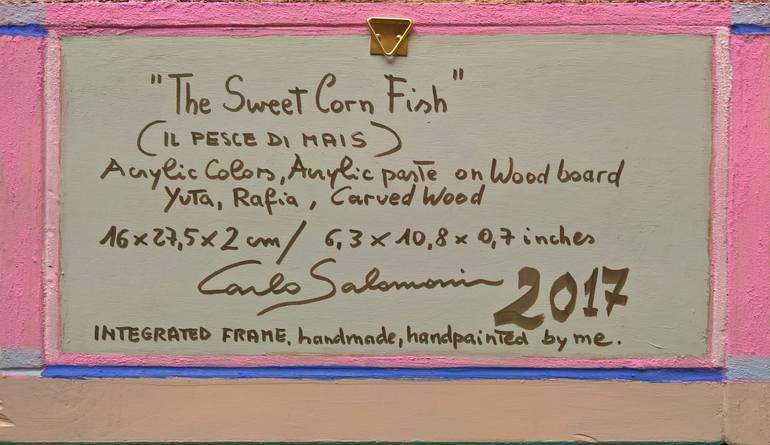 "The Sweet Corn Fish"
(IL PESCE DI MAIS)
Acrylic Colors, Acrylic paste on Wood board
Yuta, Rafia, Carved Wood
16x27,5x2 cm/ 6,3 x 10,8 x 0,7 inches
Carlo Salomoni 2017
INTEGRATED FRAME, handmade, handpainted by me.